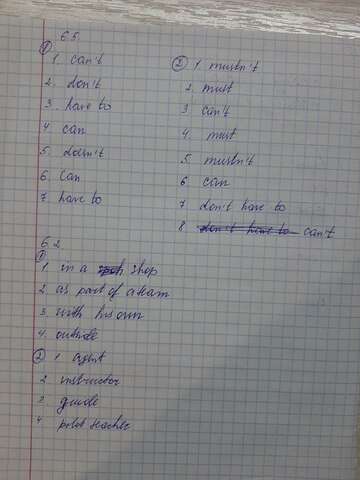 6.5.
1
1. can't
2. don't
3. have to
4. can
5. doesn't
6. Can
7. have to
2 1. mustn't
2. must
3. can't
4. must
5. mustn't
6. can
7. don't have to
8. don't have to can't
6.2
1
1. in a shop
2. as part of a team
3. with his own
4. outside
2 1. agent
2. instructor
3. guide
4. pilot teacher